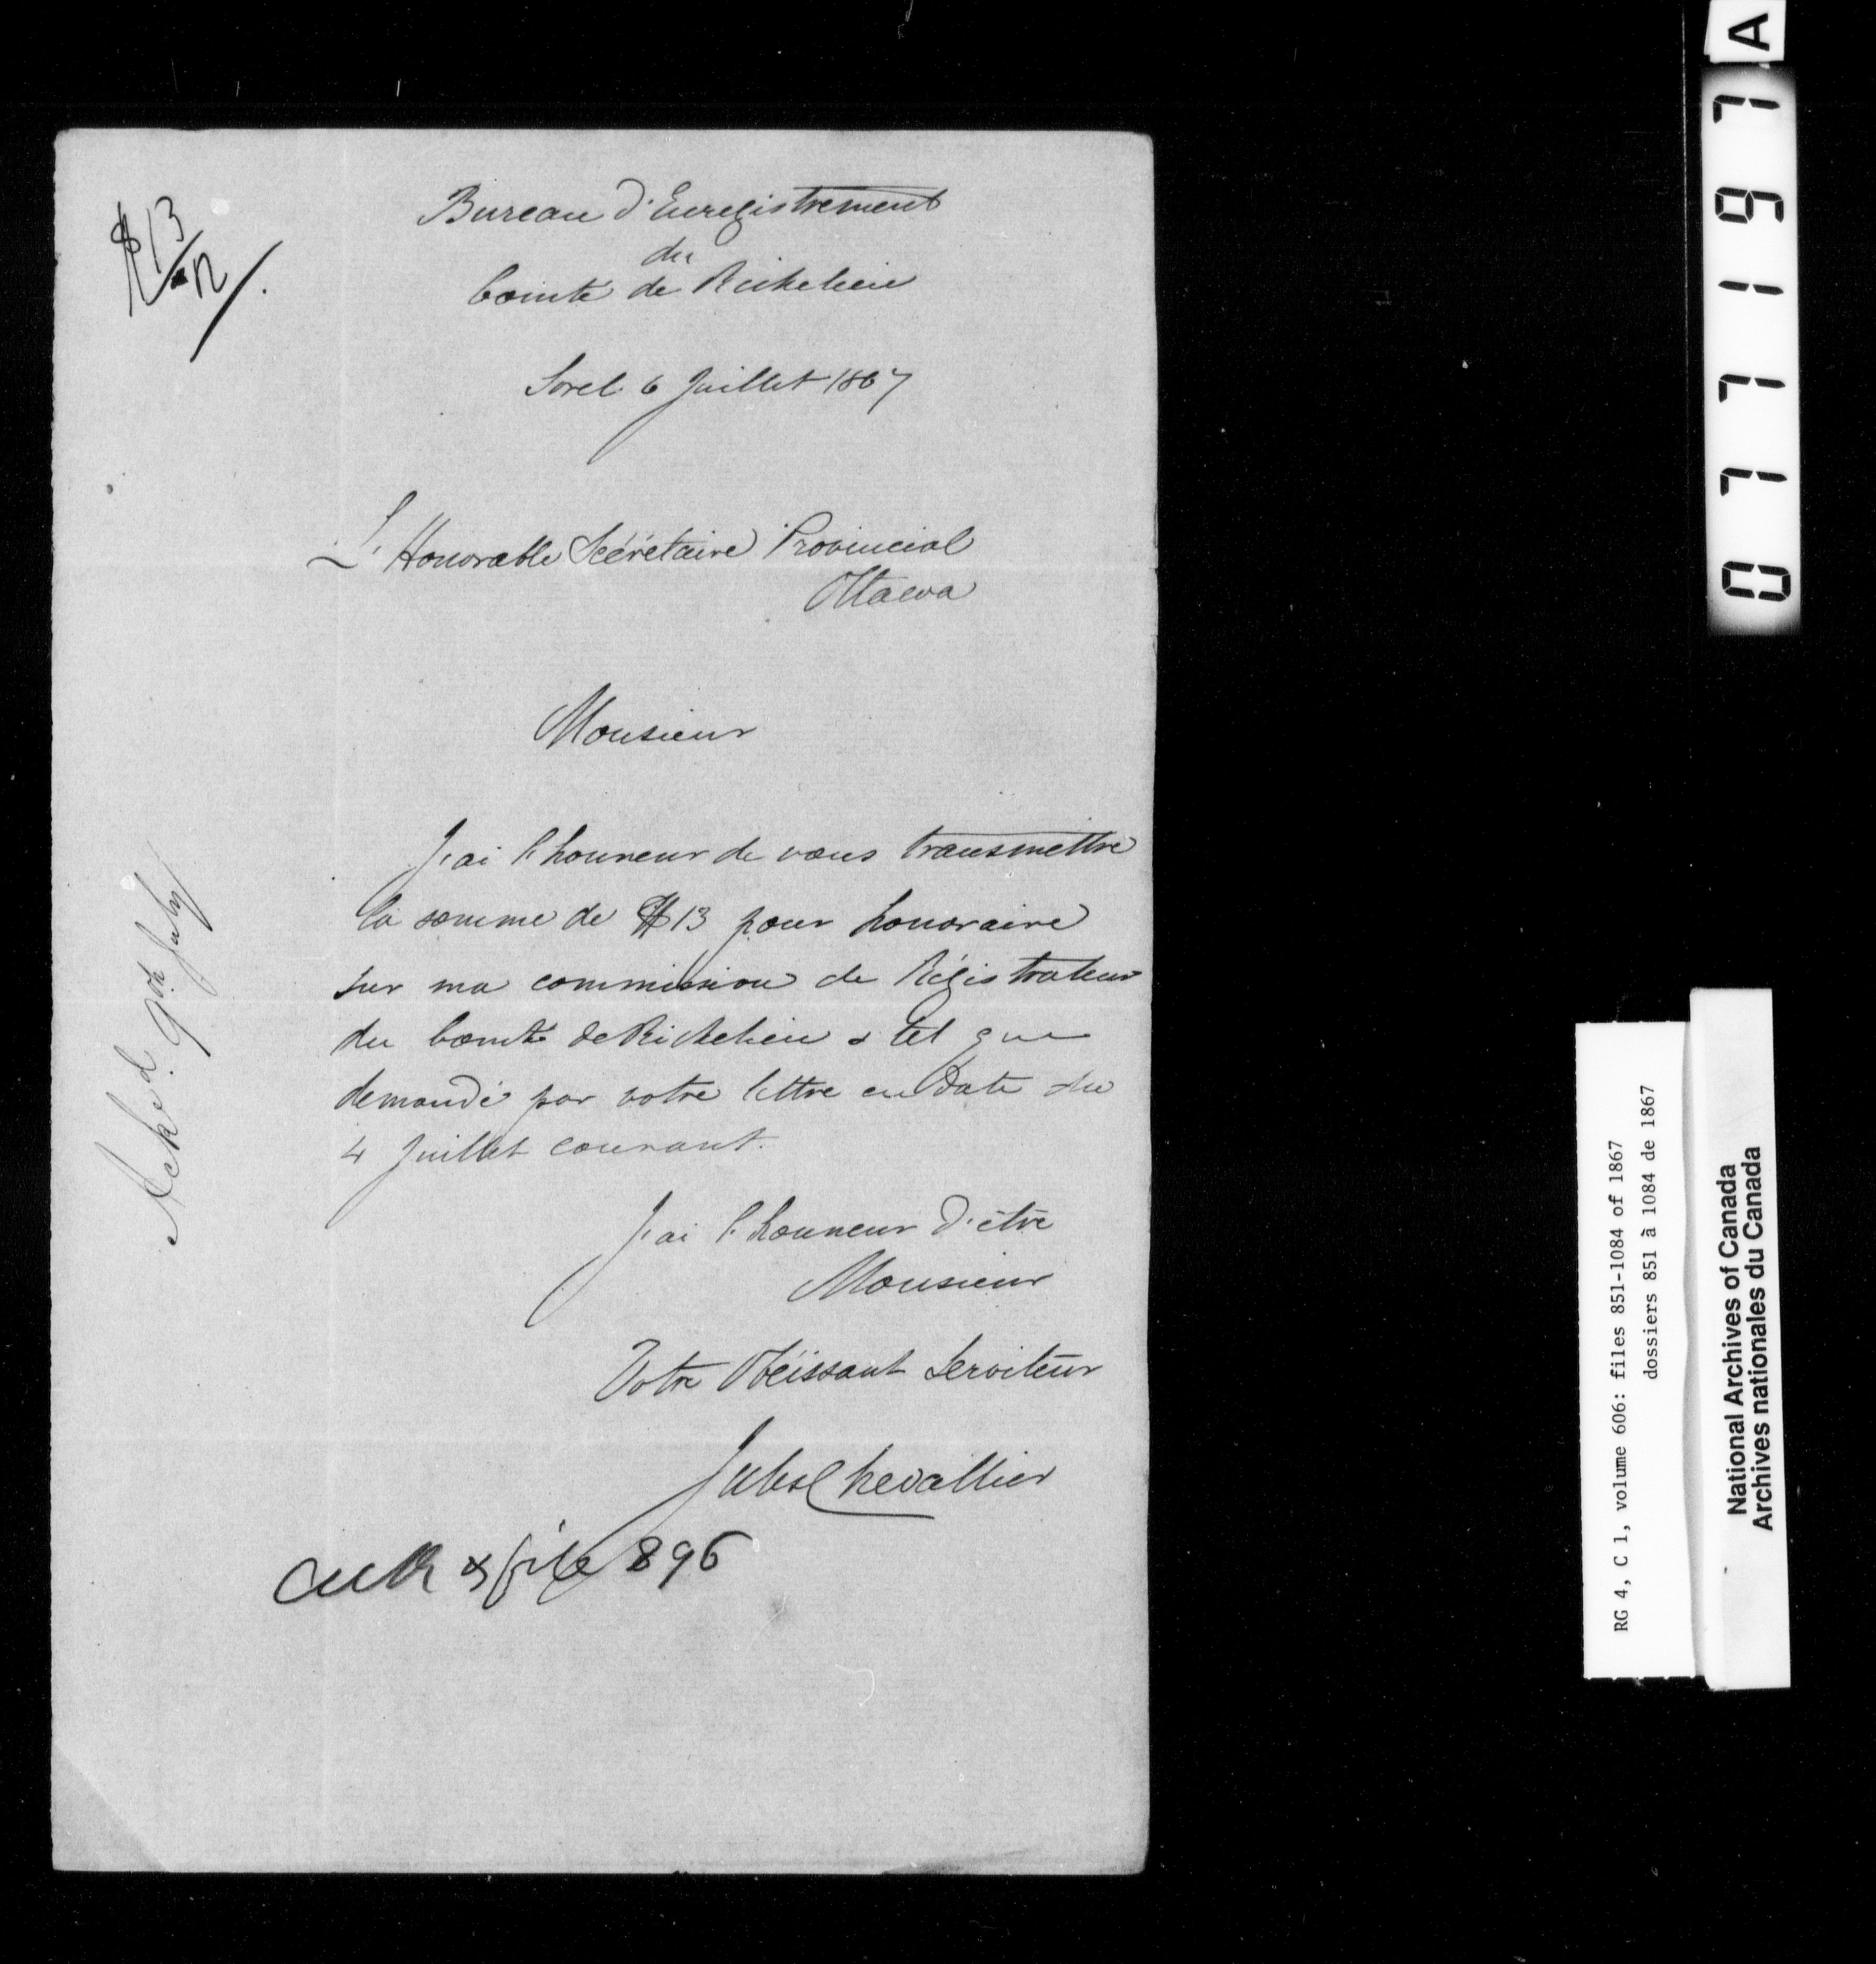 $13
Bureau d'Enregistrement
du
Comté de Richelieu
Sorel 6 Juillet 1867
L'Honorable Sécrétaire Provincial
Ottawa
Monsieur
J'ai l'honneur de vous transmettre
la somme de $13 pour honoraire
sur ma commission de Régistrateur
du Comté de Richelieu & tel que
demandé par votre lettre en date du
4 Juillet courant.
J'ai l'honneur d'être
Monsieur
Votre Obéissant Serviteur
Jules Chevallier
Acked. 9th July
Ack & file 896
077197 A
RG 4, C 1, volume 606: files 851-1084 of 1867
dossiers 851 à 1084 de 1867
National Archives of Canada
Archives nationales du Canada